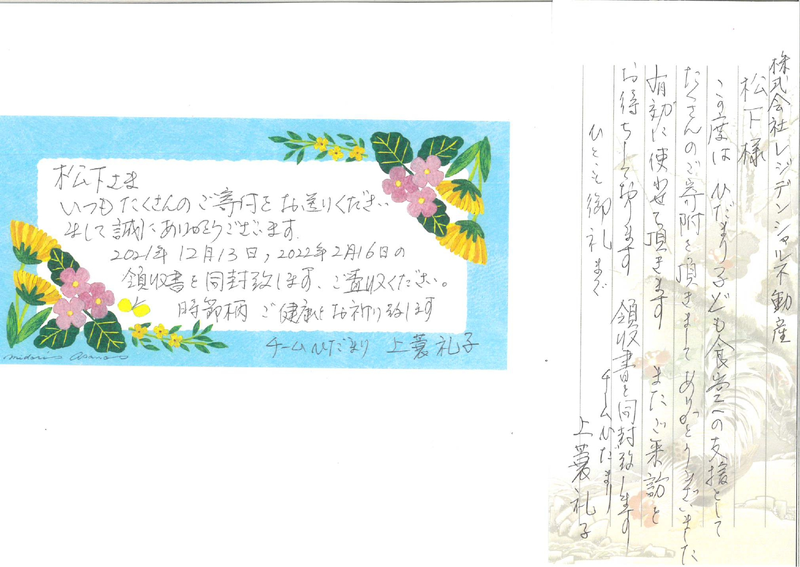 松下さま
いつもたくさんのご寄付をお送りくださいい
まして誠にありがとうございます.
2021年12月13日,2022年2月16日の
領収書を同封致します、ご査収ください。
時節柄 ご健康をお祈り致します
チームひだまり 上蓑礼子
株式会社レジデンシャル不動産
松下様
この度は ひだまり子ども食堂への支援として
たくさんのご寄附を頂きましてありがとうございました
有効に使わせて頂きます またご来訪を
お待ちして居ります 領収書を同封致します
ひとまず御礼まで
チームひだまり
上蓑礼子